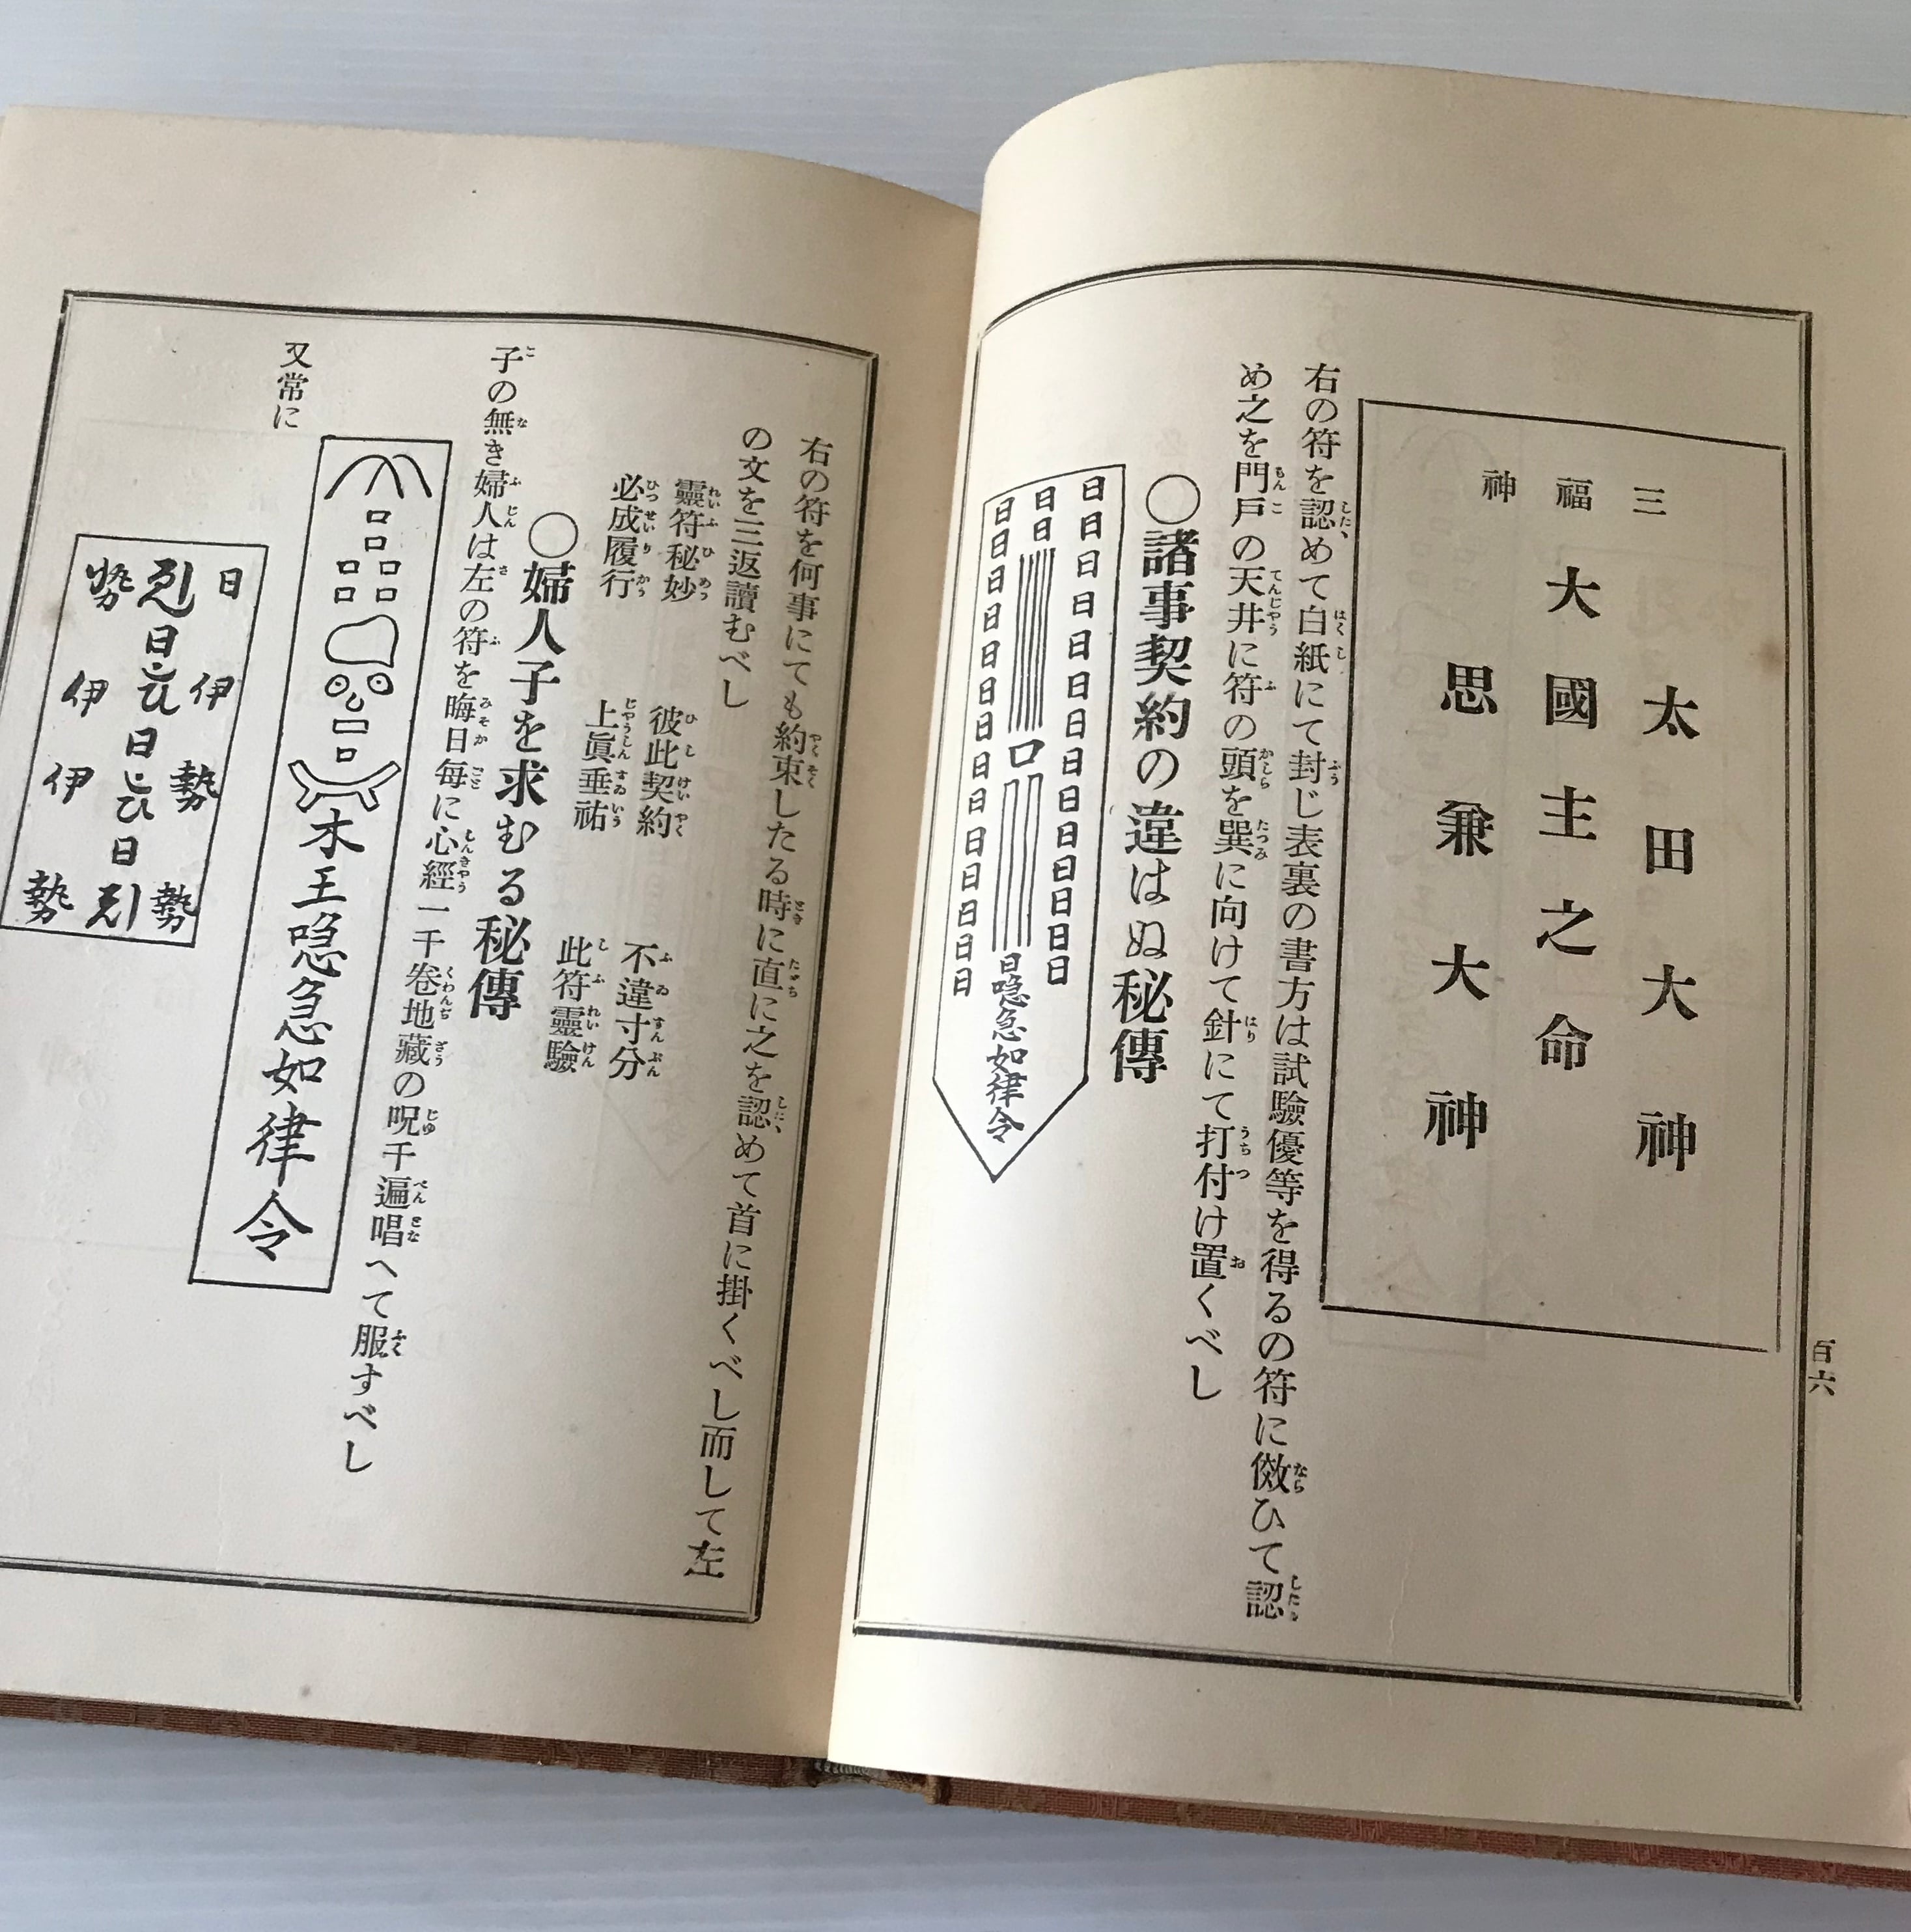 百六
三福神
太田大神
大國主之命
思兼大神
右の符を認めて白紙にて封じ表裏の書方は試驗優等を得るの符に傚ひて認
め之を門戸の天井に符の頭を巽に向けて針にて打付け置くべし
○諸事契約の違はぬ秘傳
日日日日日日日日日日日日日日
日日
口
日隐急如律令
日日日日日日日日日日日日日日
右の符を何事にても約束したる時に直に之を認めて首に掛くべし而して左
の文を三返讀むべし
靈符秘妙 彼此契約 不違寸分
必成履行 上眞垂祐 此符靈驗
○婦人子を求むる秘傳
子の無き婦人は左の符を晦日毎に心經一千卷地藏の呪千遍唱へて服すべし
又常に
日 伊 勢 勢
日 日 日
勢 伊 伊 勢